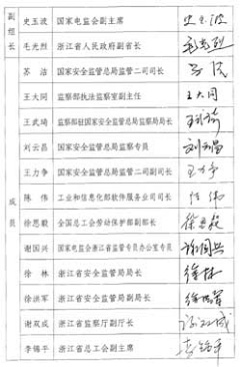 副组长
史玉波 国家电监会副主席 史玉波
毛光烈 浙江省人民政府副省长 毛光烈
成员
苏洁 国家安全监管总局监管二司司长 苏洁
王大同 监察部执法监察室副主任 王大同
王武琦 监察部驻国家安全监管总局监察局局长
刘云昌 国家安全监管总局监察专员 刘云昌
王力争 国家安全监管总局监管二司副司长 王力争
陈伟 工业和信息化部软件服务业司司长 陈伟
徐思毅 全国总工会劳动保护部副部长 徐思毅
谢国兴 国家电监会浙江省监管专员办公室专员 谢国兴
徐林 浙江省安全监管局局长 徐林
徐洪军 浙江省安全监管局副局长 徐洪军
谢双成 浙江省监察厅副厅长 谢双成
李锡平 浙江省总工会副主席 李锡平